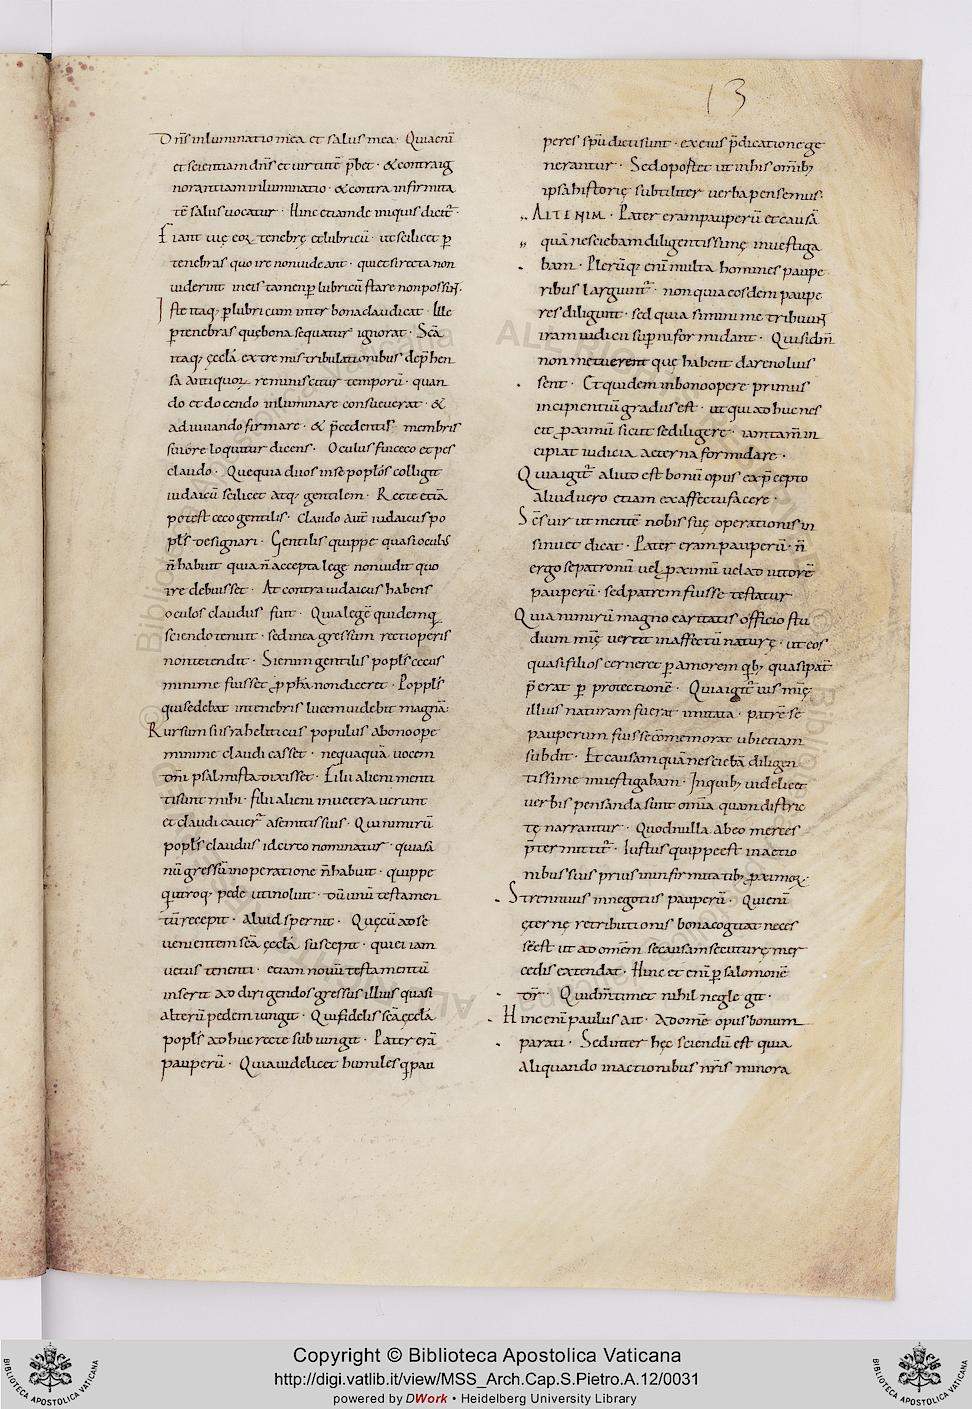 13
Dn̄s inluminatio mea et salus mea · Quia enī
et scientiam dn̄s et uirtutē p̄bet · & contra ig
norantiam inluminatio · & contra infirmita
tē salus uocatur · Hinc etiam de iniquis dicit̄ ·
Fiant uię eoꝝ tenebrę et lubricū · ut scilicet ꝑ
tenebras quo ire non uideant · qui et si recta non
uiderint in eis tamen ꝑ lubricū stare non possin̄t ·
Iste itaq; ꝑ lubricum inter bona claudicat · Ille
ꝑ tenebras quę bona sequatur ignorat · Scā
itaq; ęcclā extremis tribulationibus dep̄hen
sa antiquoꝝ reminiscitur temporū · quan
do et docendo inluminare consueuerat · &
adiuuando firmare · & p̄cedentis membris
suiore loquitur dicens · Oculus fui ceco et pes
claudo · Que quia duos in se poplōs colligit
iudaicū scilicet atq; gentilem · Recte etiā
potest ceco gentilis · claudo aut̄ iudaicus po
pl̄s designari · Gentilis quippe quasi oculōs
n̄ habuit quia n̄ accepta lege non uidit quo
ire debuisset · At contra iudaicus habens
oculos claudus fuit · Quia legē quidem q
sciendo tenuit · sed in ea gressum recti operis
non tetendit · Si enim gentilis popl̄s cecus
minime fuisset ꝓpħa non diceret · Poppl̄s
qui sedebat in tenebris lucem uidebit magnā ·
Rursum si israheliticus populus a bono ope
minime claudicasset · nequaquā uocem
dn̄i psalmista dixisset · Filii alieni menti
ti sunt mihi · filii alieni inueterauerunt
et claudicauer̄ a semitis suis · Qui nimirū
popl̄s claudus idcirco nominatur · quia sa
nū gressū in operatione n̄ habuit · quippe
q utroq; pede uti noluit · dū unū testamen
tū recepit · aliud spernit · Quę cū ad se
uenientem scā ęcclā suscepit · qui ei iam
uetus tenenti · etiam nouū testamentū
inserit ad dirigendos gressus illius quasi
alterū pedem iungit · Qui fidelis scā ęcclā
popl̄s adhuc recte subiungit · Pater erā
pauperū · Quia uidelicet humiles q pau
peres sp̄u dicti sunt · ex eius p̄dicatione ge
nerantur · Sed oportet ut in his om̄ib;
ipsa historię subtiliter uerba pensemus ·
ALITENIM · Pater eram pauperū et causā
quā nesciebam diligentissimę inuestiga
bam · Plerūq; enī multa homines paupe
ribus largiunt̄ · non quia eosdem paupe
res diligunt · sed quia si minime tribuunt
iram iudicii sup̄ni formidant · Qui si dm̄
non metuerent quę habent dare noluis
sent · Et quidem in bono opere primus
incipientiū gradus est · ut qui adhuc nes
cit ꝓximū sicut se diligere · iam tam̄ in
cipiat iudicia aeterna formidare ·
Quia igit̄ aliud est bonū opus ex p̄cepto
aliud uero etiam ex affectu facere ·
Scs uir ut mentē nobis suę operationis in
sinuet dicat · Pater eram pauperū · n̄
ergo se patronū uel ꝓximū uel adiutorē
pauperū · sed patrem fuisse testatur
Quia nimirū magno caritatis officio stu
dium mię uertit in affectū naturę · ut eos
quasi filios cerneret ꝑ amorem qb; quasi pat̄
p̄erat ꝑ protectionē · Quia igit̄ uis mię
illius naturam fuerat imitata · patrē se
pauperum fuisse cōmemorat ubi etiam
subdit · Et causam quā nesciebā diligen
tissime inuestigabam · In quib; uidelicet
uerbis pensanda sunt om̄ia quam distric
tę narrantur · Quod nulla ab eo merces
p̄termittit̄ · Iustus quippe est in actio
nibus suis prius in infirmitatib; ꝓximoꝝ ·
Strennuus in negotiis pauperū · Qui enī
ęternę retributionis bona cogitat neces
sē est ut ad omēm se causam secuturę mer
cedis extendat · Hinc et enī ꝑ salomonē
dr̄ · Qui dm̄ timet nihil neglegit ·
Hinc enī paulus ait · Ad omē opus bonum
parati · Sed inter hęc sciendū est quia
aliquando in actionibus nr̄is minora
Copyright © Biblioteca Apostolica Vaticana
http://digi.vatlib.it/view/MSS_Arch.Cap.S.Pietro.A.12/0031
powered by DWork • Heidelberg University Library